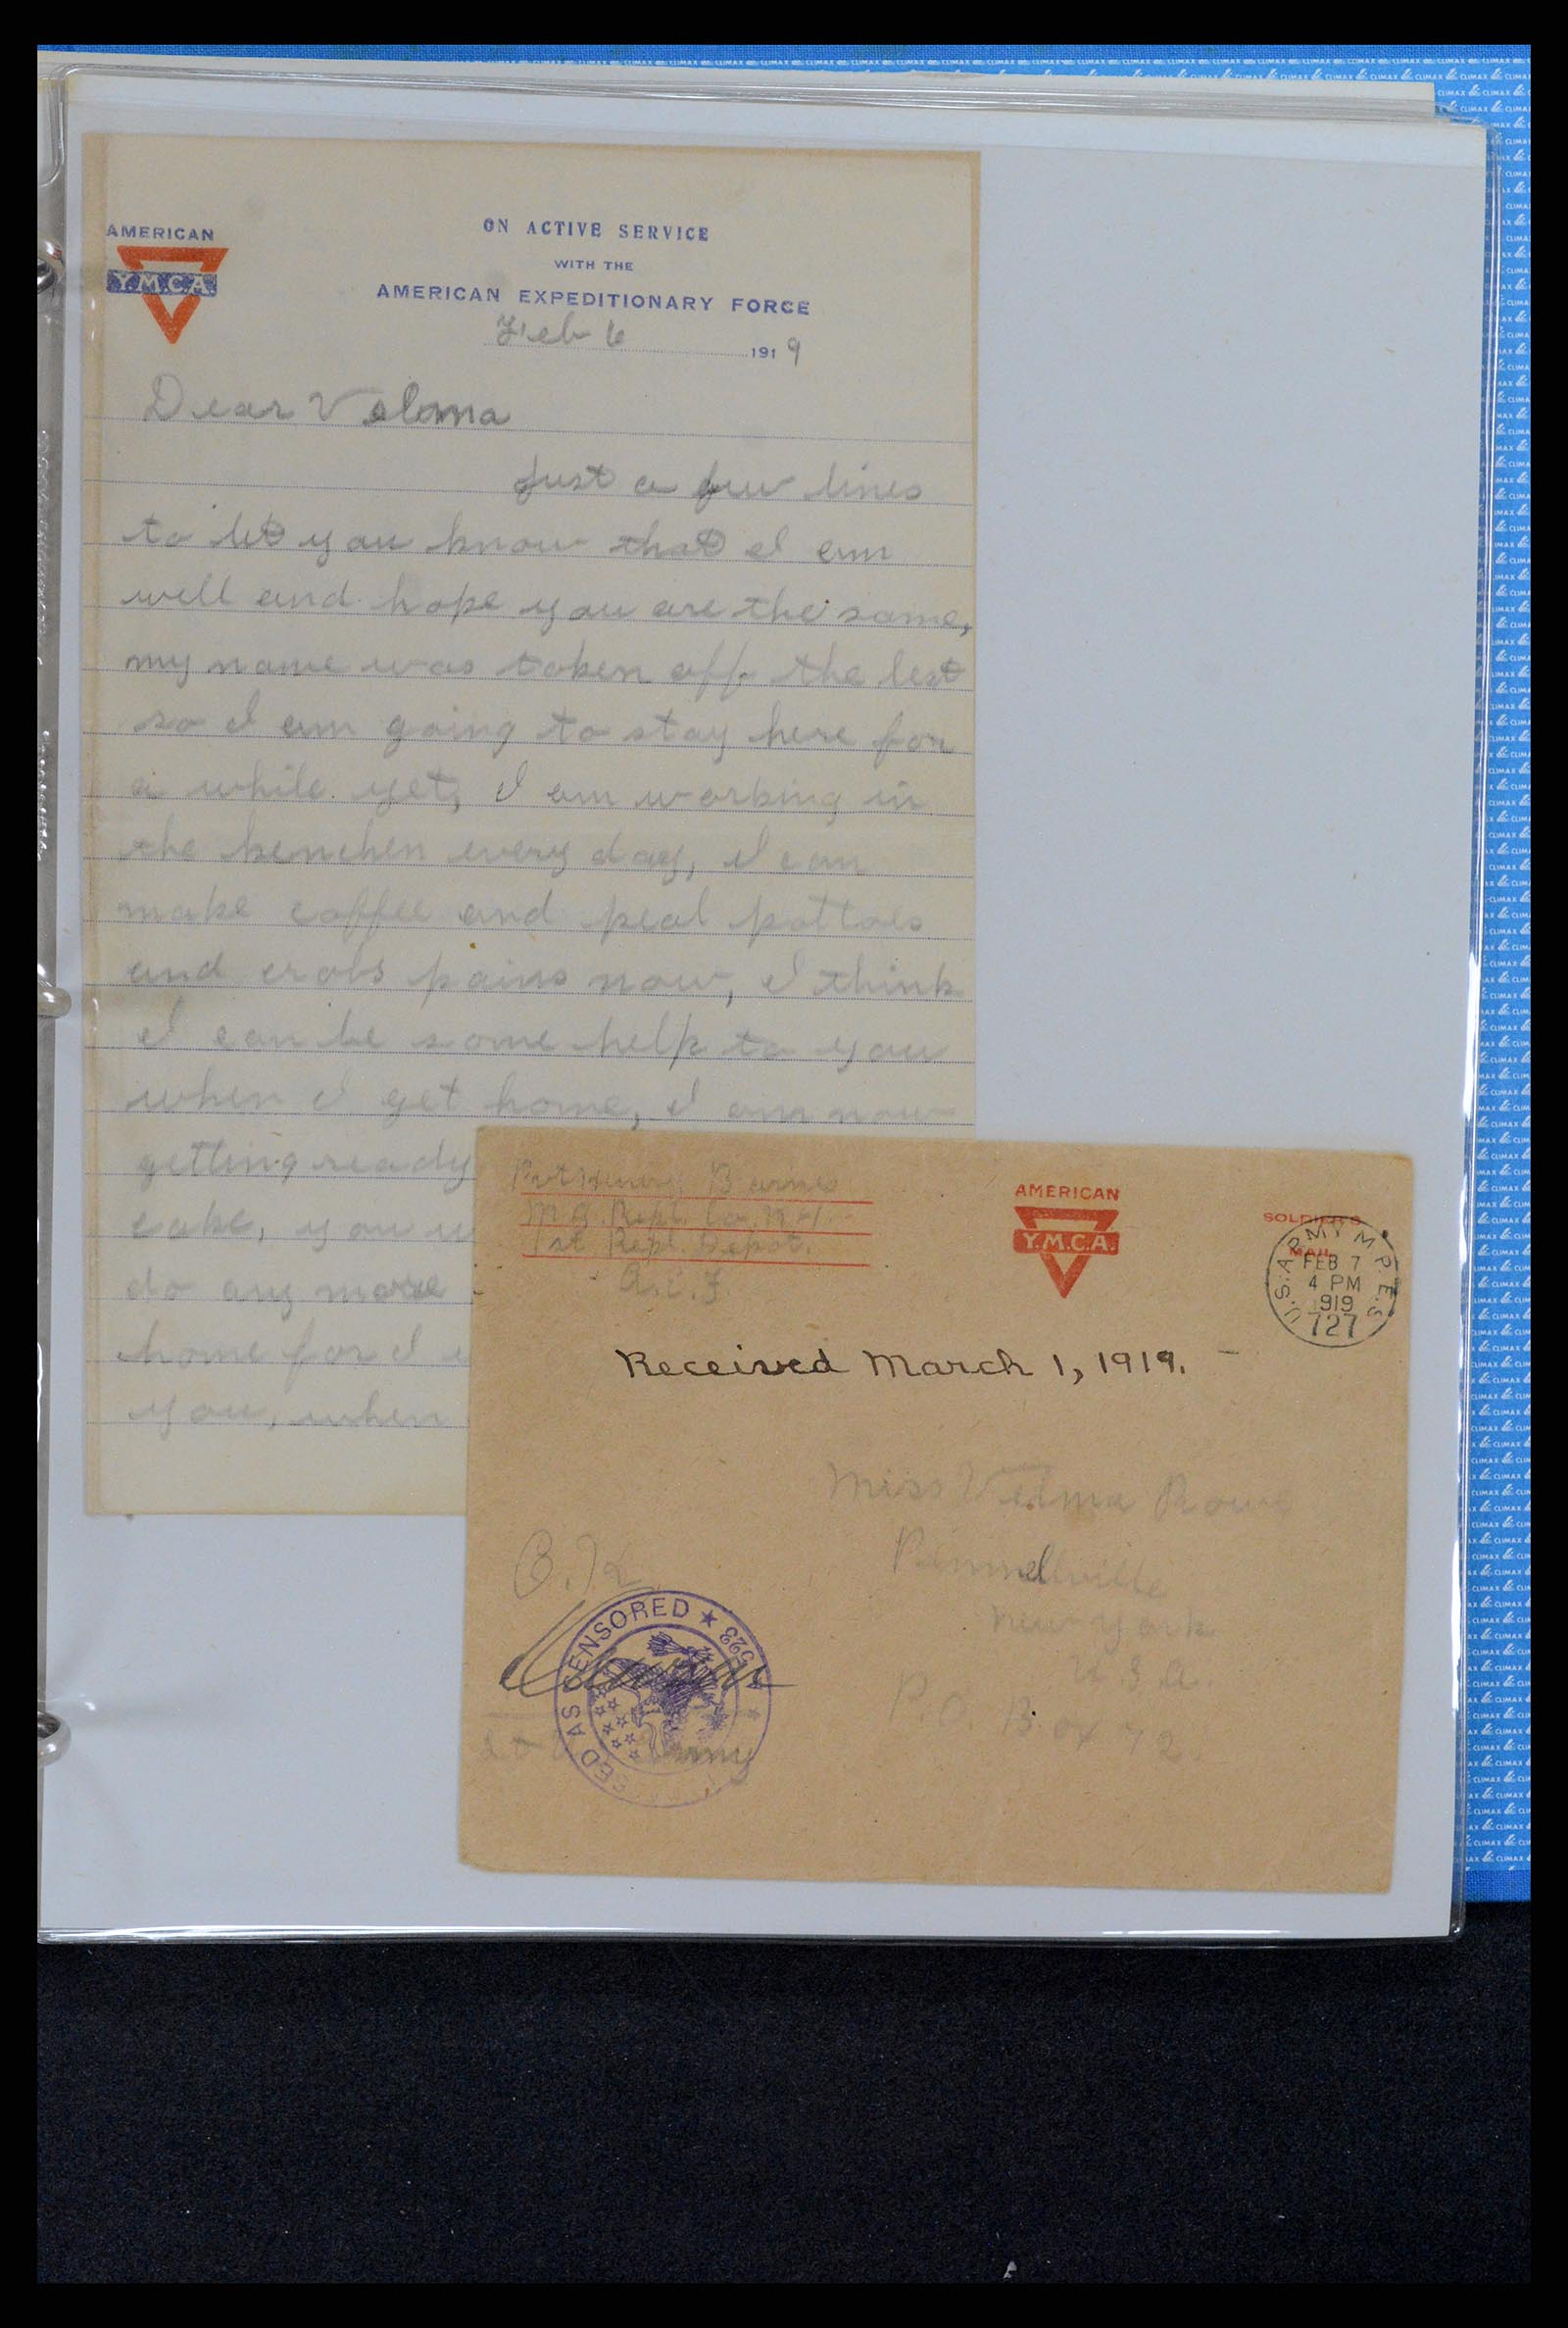 AMERICAN
Y.M.C.A.
ON ACTIVE SERVICE
WITH THE
AMERICAN EXPEDITIONARY FORCE
Feb 6 1919
Dear Velma
Just a few lines
to let you know that I am
well and hope you are the same,
my name was taken off the lest
so I am going to stay here for
a while yet, I am working in
the kenchen every day, I can
make coffee and peal pottoes
and crobs pains now, I think
I can be some help to you
when I get home, I am now
getting ready
cake, you
do any more
home for I
you, when
Pvt Henery Barnes
M.G. Repl. Co. No 1
1st Repl. Depot.
A.E.F.
AMERICAN
Y.M.C.A.
SOLDIER'S
MAIL
U.S. ARMY M.P.E.S.
FEB 7
4 PM
1919
727
Received March 1, 1919.
Miss Velma Rowe
Pennellville
New York
U.S.A.
P.O. Box 72
O.K.
PASSED AS CENSORED ★ 5523 ★
Army
CLIMAX